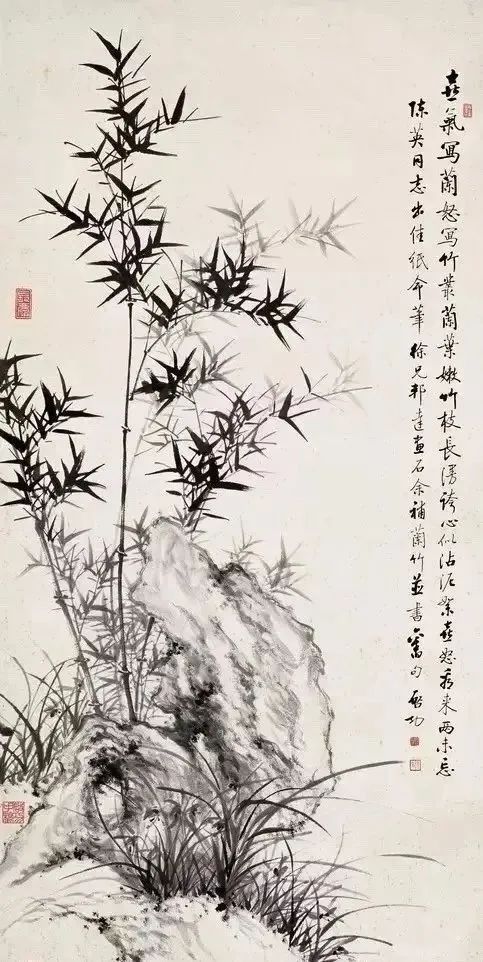 喜氣寫蘭怒寫竹叢蘭葉嫩竹枝長漫誇心似沾泥絮喜怒看来兩未忘
陳英同志出佳紙命筆徐兄邦達畫石余補蘭竹並書舊句啓功